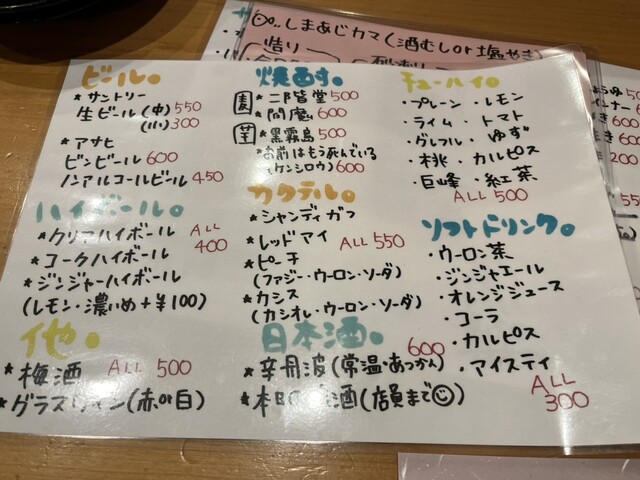 しまあじカマ(酒むしor塩やき)
造り
ビール。
*サントリー
生ビール(中)550
(小)300
*アサヒ
ビンビール 600
ノンアルコールビール 450
ハイボール。
*クリアハイボール
ALL 400
*コークハイボール
*ジンジャーハイボール
(レモン・濃いめ+¥100)
他。
*梅酒 ALL 500
*グラスワイン(赤or白)
焼酎。
麦 *二階堂 500
*閻魔 600
芋 *黒霧島 500
*お前はもう死んでいる
(ケンシロウ) 600
カクテル。
*シャンディガフ
*レッドアイ ALL 550
*ピーチ
(ファジー・ウーロン・ソーダ)
*カシス
(カシオレ・ウーロン・ソーダ)
日本酒。
600
*辛丹波(常温・あつかん)
*本日 酒(店員まで)
チューハイ。
・プレーン・レモン
・ライム・トマト
・グレフル・ゆず
・桃・カルピス
・巨峰・紅茶
ALL 500
ソフトドリンク。
・ウーロン茶
・ジンジャエール
・オレンジジュース
・コーラ
・カルピス
・アイスティ
ALL 300